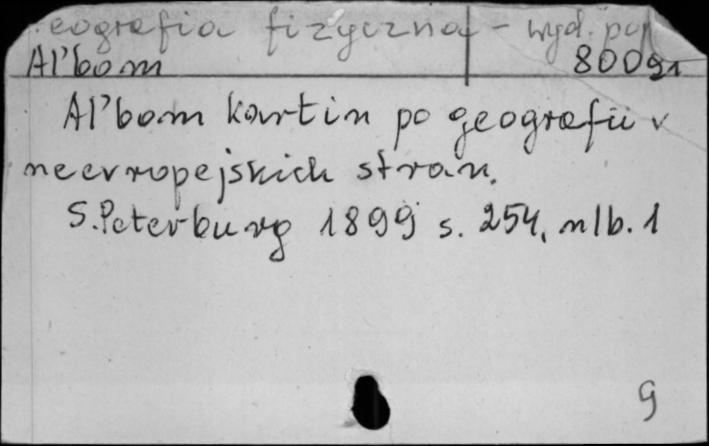 eografia fizyczna - wyd. pop
Al'bom 80091
Al'bom kartin po geografii v
neevropejskich stran.
S. Peterburg 1899 s. 254, nlb. 1
9